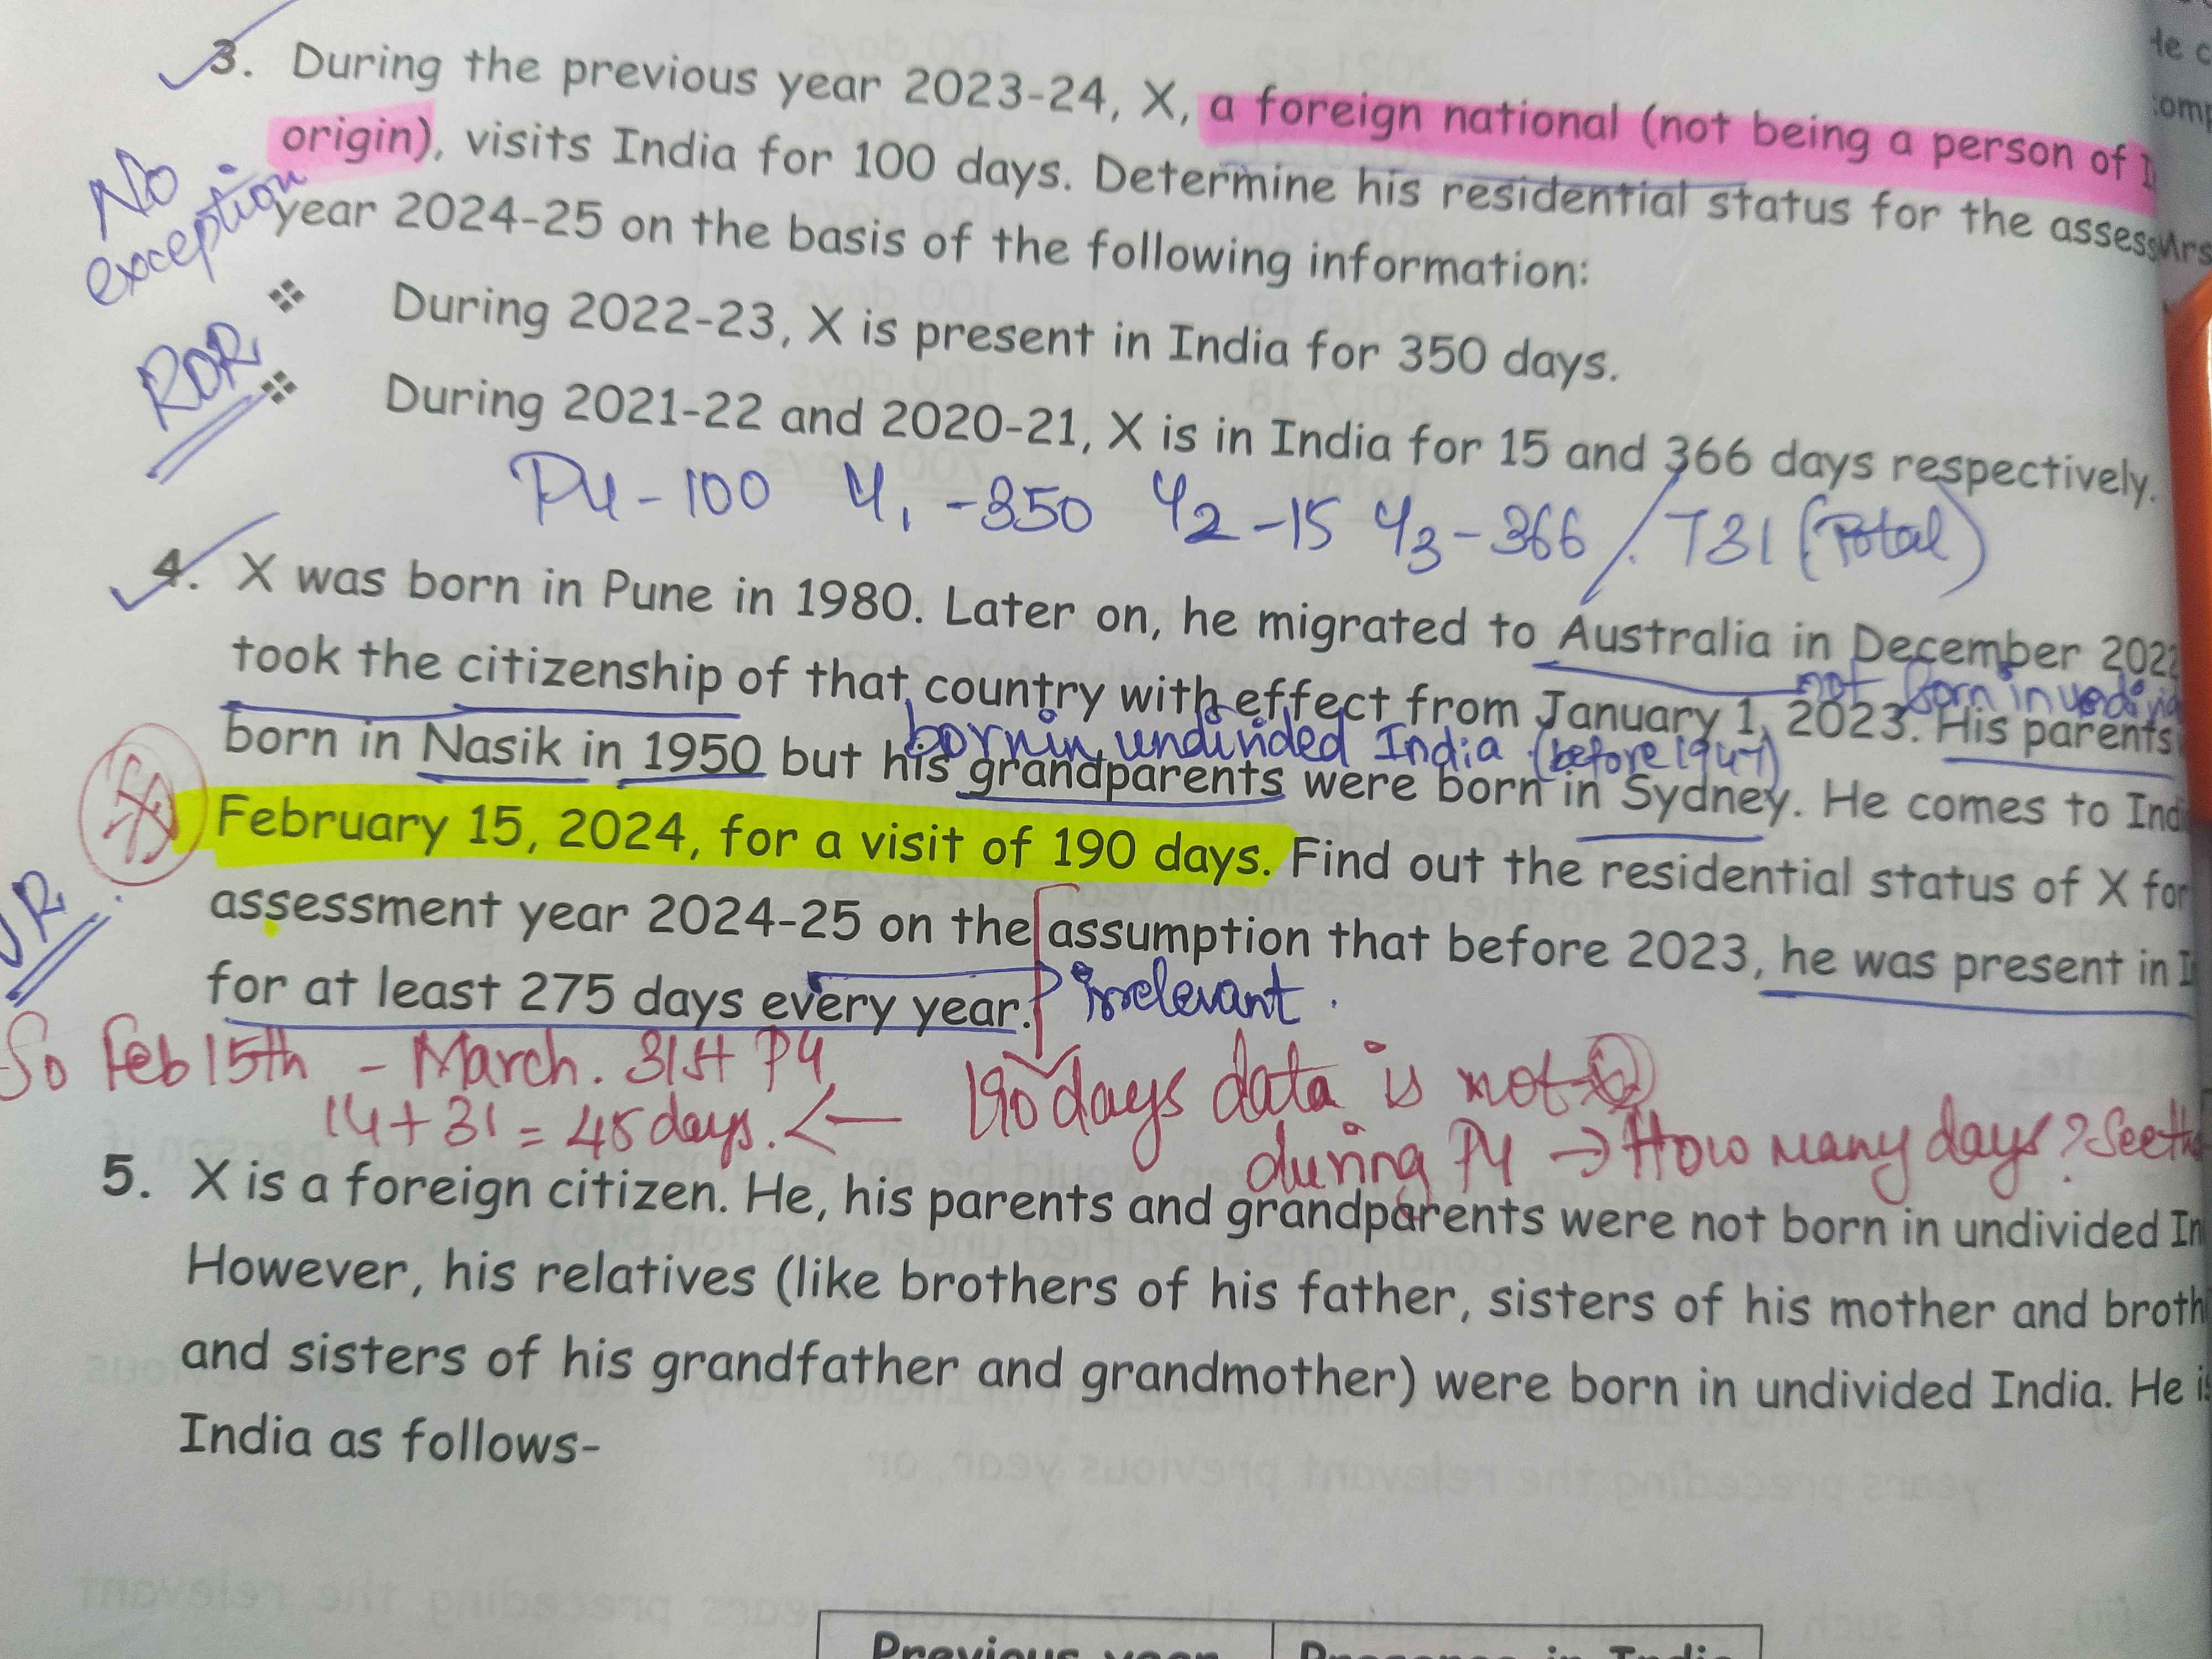 3. During the previous year 2023-24, X, a foreign national (not being a person of
origin), visits India for 100 days. Determine his residential status for the assess
year 2024-25 on the basis of the following information:
No
exception
ROR
❖ During 2022-23, X is present in India for 350 days.
❖ During 2021-22 and 2020-21, X is in India for 15 and 366 days respectively.
PY - 100 Y1 - 350 Y2 - 15 Y3 - 366 / 731 (Total)
4. X was born in Pune in 1980. Later on, he migrated to Australia in December 202
took the citizenship of that country with effect from January 1, 2023. His parents
not born in
born in undivided India (before 1947)
born in Nasik in 1950 but his grandparents were born in Sydney. He comes to Ind
February 15, 2024, for a visit of 190 days. Find out the residential status of X for
assessment year 2024-25 on the assumption that before 2023, he was present in I
for at least 275 days every year. irrelevant.
So Feb 15th - March. 31st PY
190 days data is not
14 + 31 = 45 days. ←
during PY → How many days?
5. X is a foreign citizen. He, his parents and grandparents were not born in undivided In
However, his relatives (like brothers of his father, sisters of his mother and broth
and sisters of his grandfather and grandmother) were born in undivided India. He i
India as follows-
Previous year Presence in India